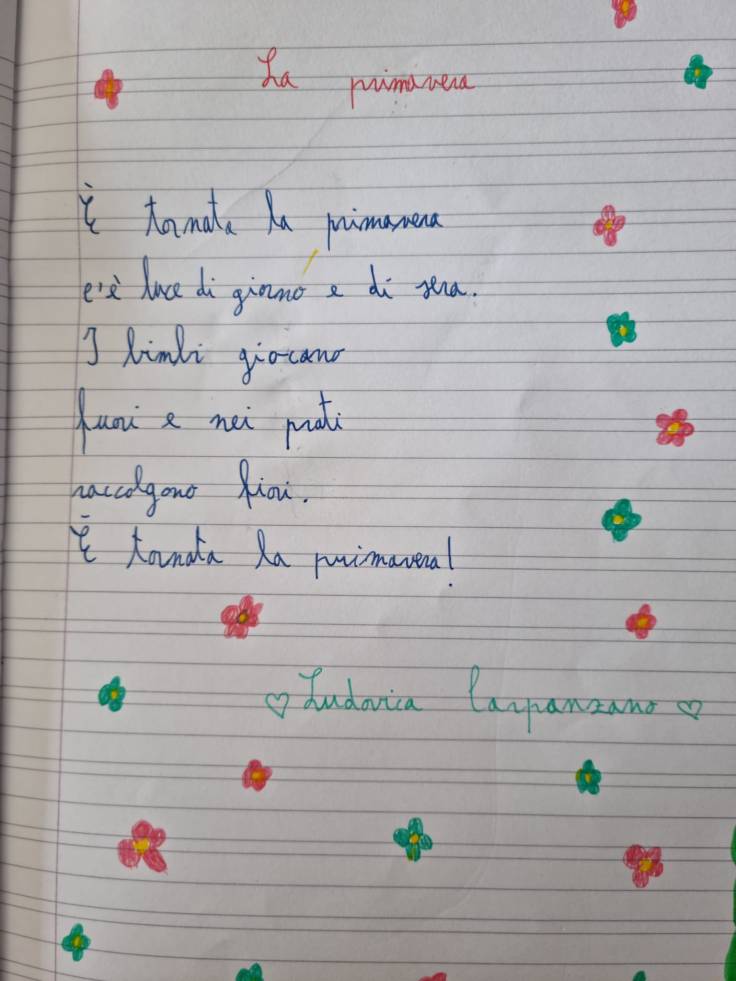 La primavera
È tornata la primavera
c'è luce di giorno e di sera.
I bimbi giocano
fuori e nei prati
raccolgono fiori.
È tornata la primavera!
♡ Ludovica Carpanzano ♡